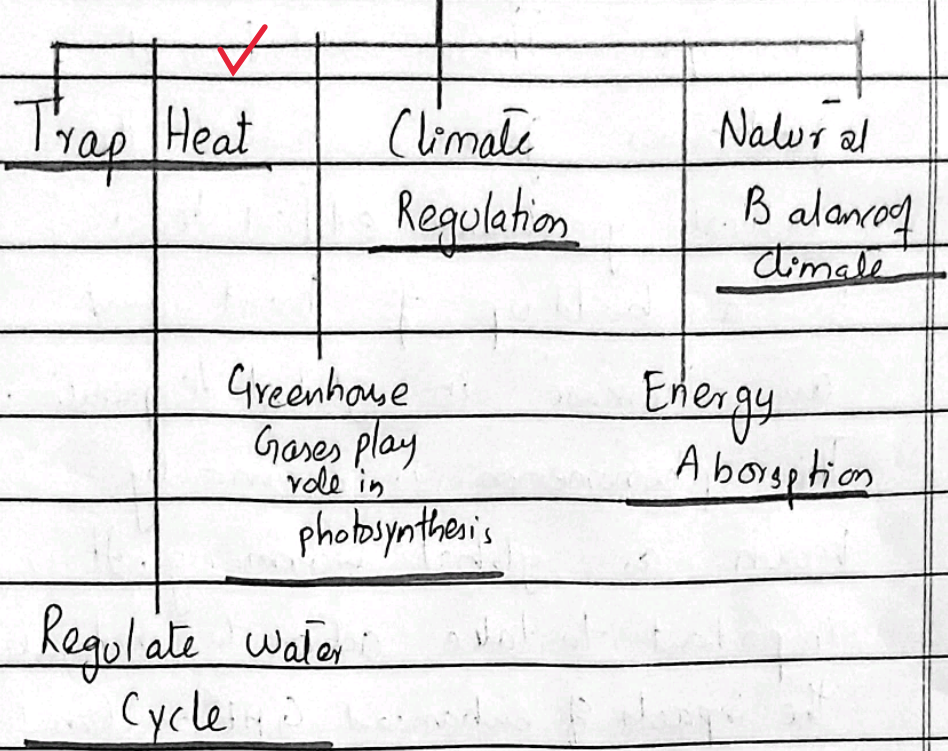 Trap Heat
Climate
Regulation
Natural
Balance of
climate
Greenhouse
Gases play
role in
photosynthesis
Energy
Aborsption
Regulate water
Cycle